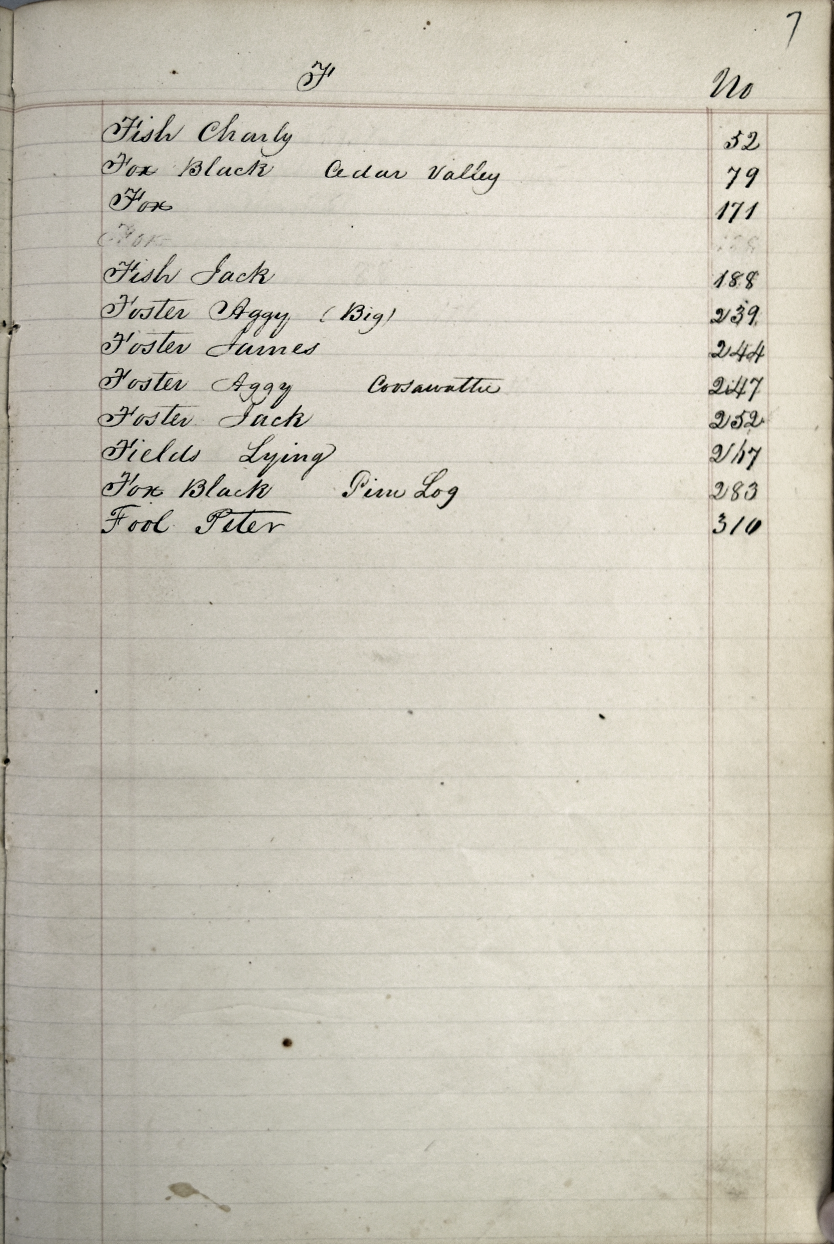 7
F No
Fish Charly 52
Fox Black Cedar Valley 79
Fox 171
Fox
Fish Jack 188
Foster Aggy (Big) 239
Foster James 244
Foster Aggy Coosawattie 247
Foster Jack 252
Fields Lying
Fox Black Pine Log 283
Fool Peter 310